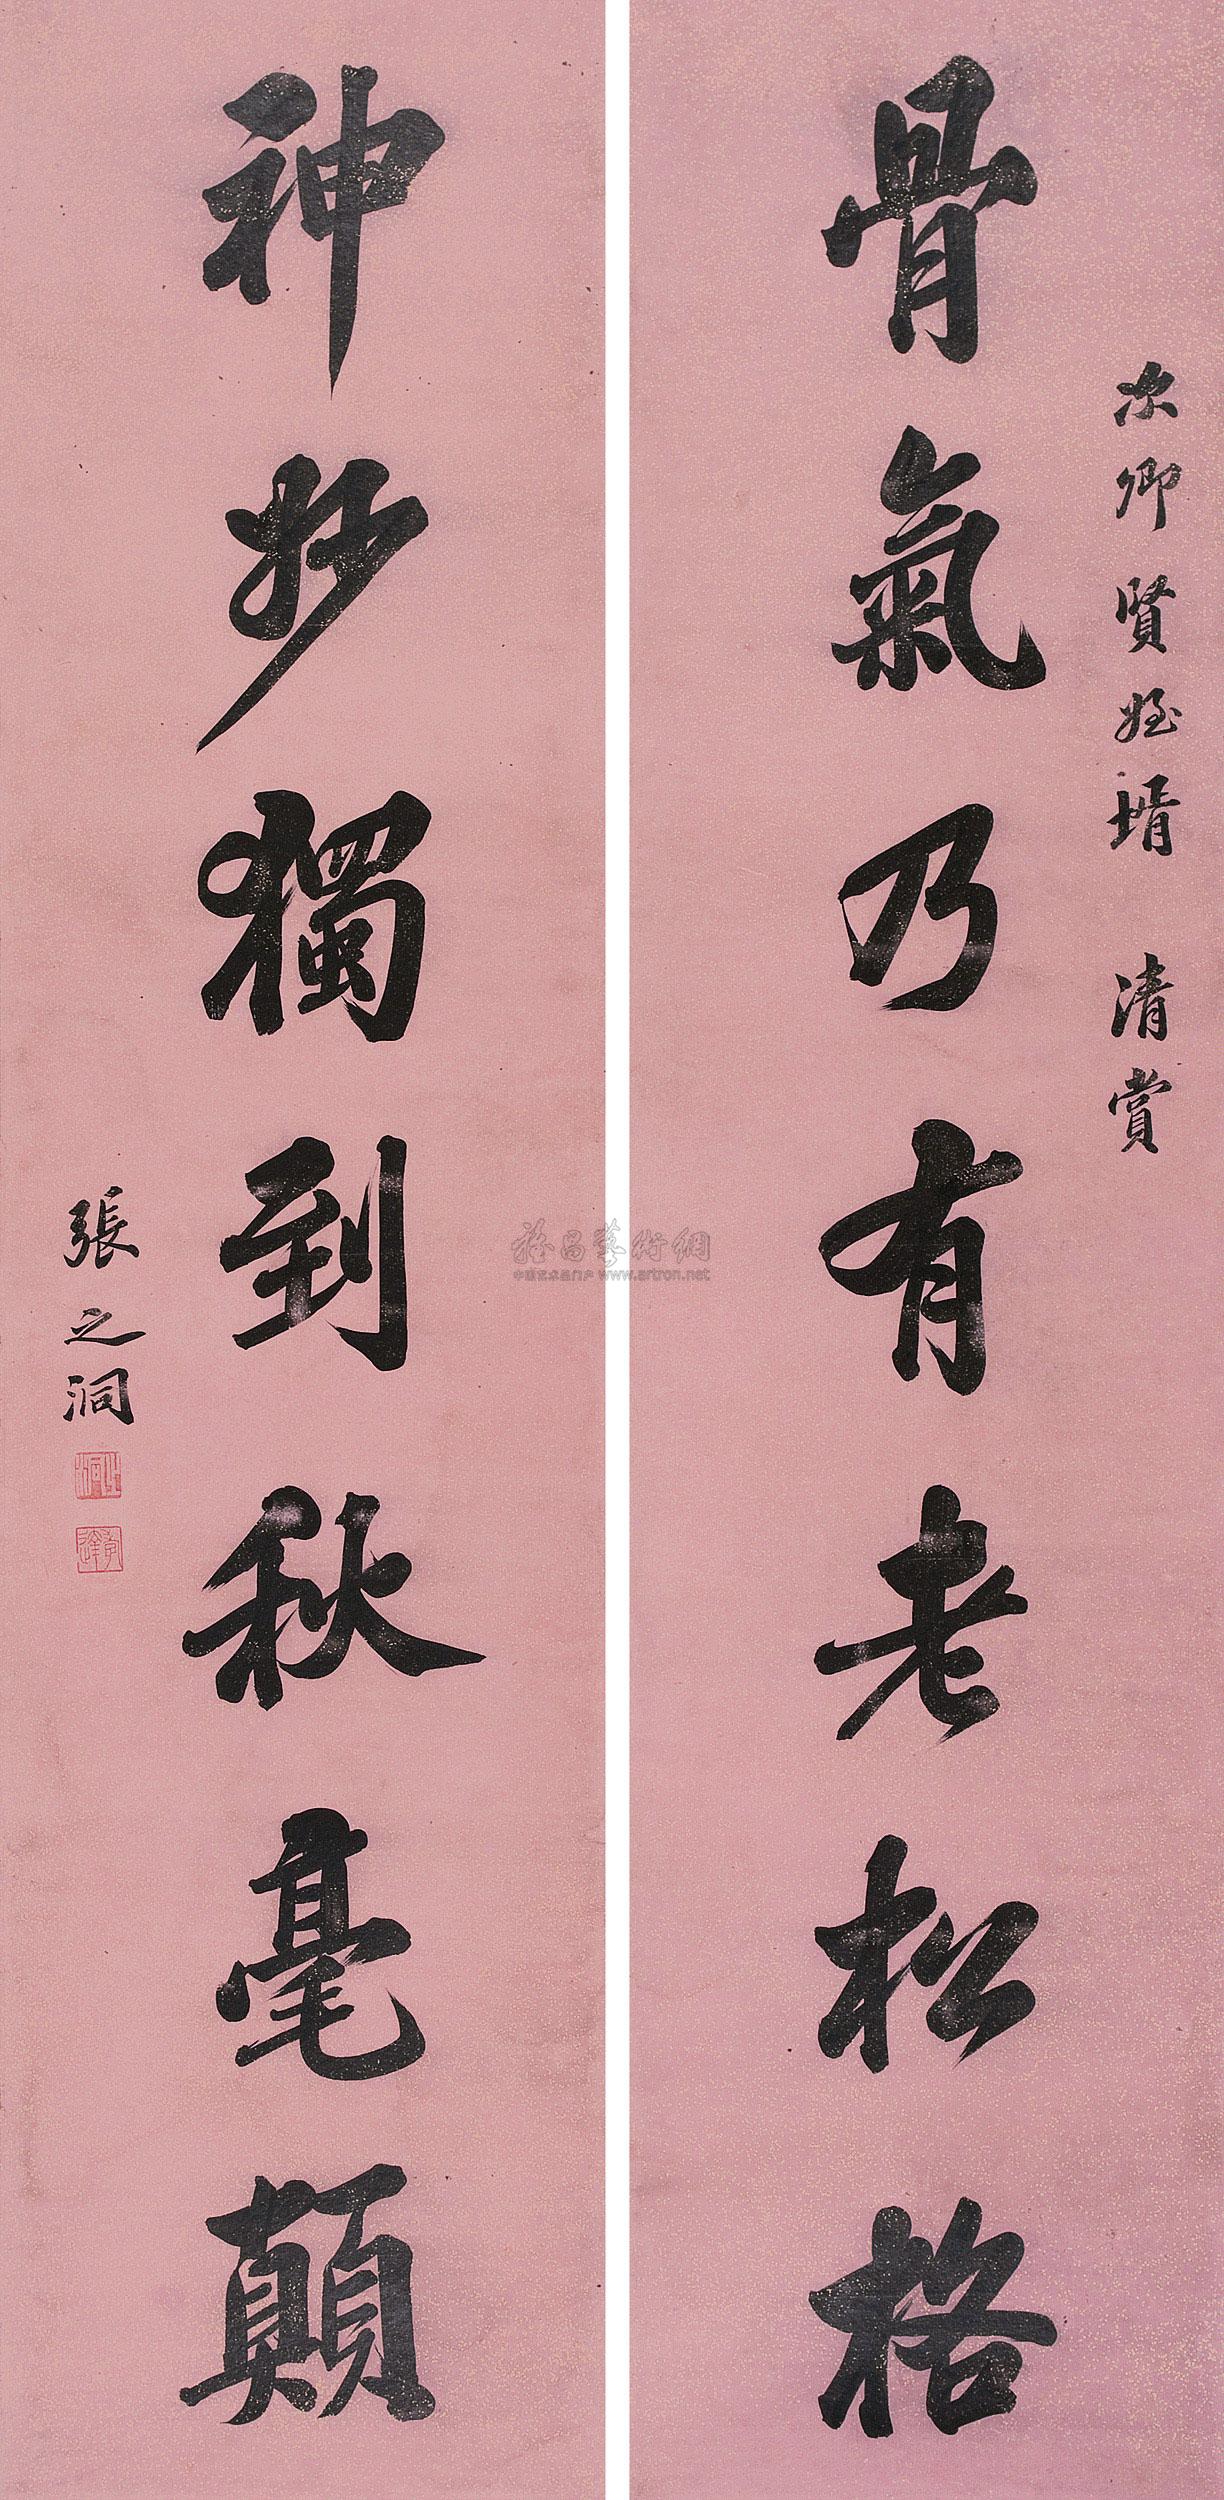 次卿賢姪壻 清賞
骨氣乃有老松格
神妙獨到秋毫顛
張之洞
雅昌藝術網
中国艺术品门户 www.artron.net